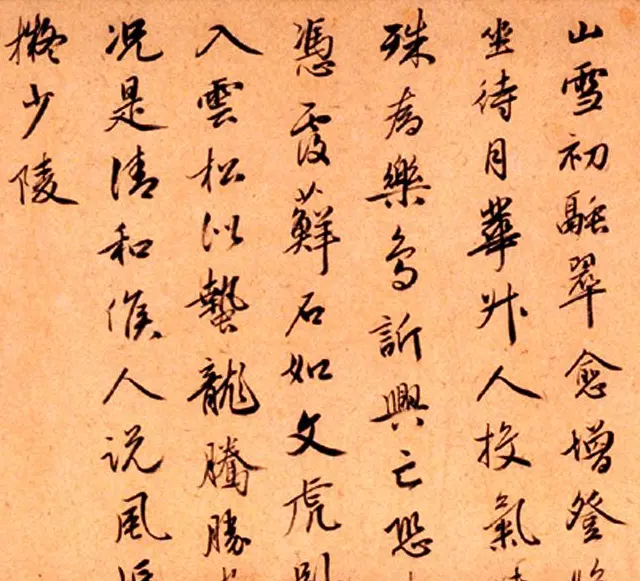 山雪初融翠愈增登
坐待月華升人投氣
殊為樂鳥訴興亡恐
憑霞蘚石如文虎
入雲松似蟄龍騰勝
況是清和候人說風
擬少陵